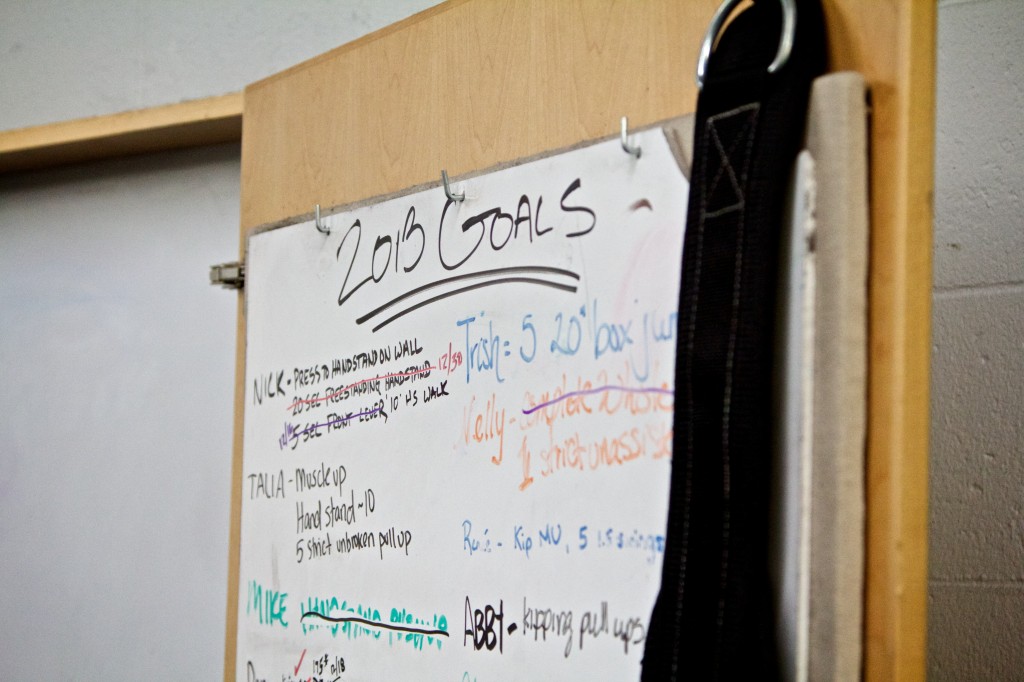 2013 GOALS
NICK - PRESS TO HANDSTAND ON WALL
20 SEC FREESTANDING HANDSTAND 12/30
5 SEC FRONT LEVER, 10' HS WALK
TALIA - Muscle up
Hand stand ~10
5 strict unbroken pull up
MIKE HANDSTAND PUSHUPS
Trish = 5 20" box
Nelly - complete
1 strict
- Kip MU, 5
ABBY - kipping pull ups